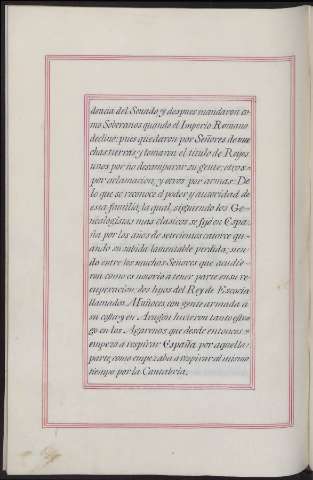 dencia del Senado, y despues mandaron co-
mo Soberanos quando el Imperio Romano
declinó: pues quedaron por Señores de mu-
chas tierras, y tomaron el titulo de Reyes
unos por no desamparar su gente, otros
por aclamacion, y otros por armas: De
lo que se reconoce el poder y autoridad de
esta familia, la qual, siguiendo los Ge-
nealogistas mas clasicos se fijó en Espa-
ña por los años de setecientos catorce qu-
ando su subida lamentable perdida; sien-
do entre los muchos Señores que acudie-
ron como es notorio a tener parte en su re-
cuperacion, dos hijos del Rey de Escocia
llamados Muñoces, con gente armada a
su costa y en Aragon hicieron tanto estra-
go en los Agarenos que desde entonces
empezó a respirar España por aquella
parte, como empezaba a respirar al mismo
tiempo por la Cantabria.